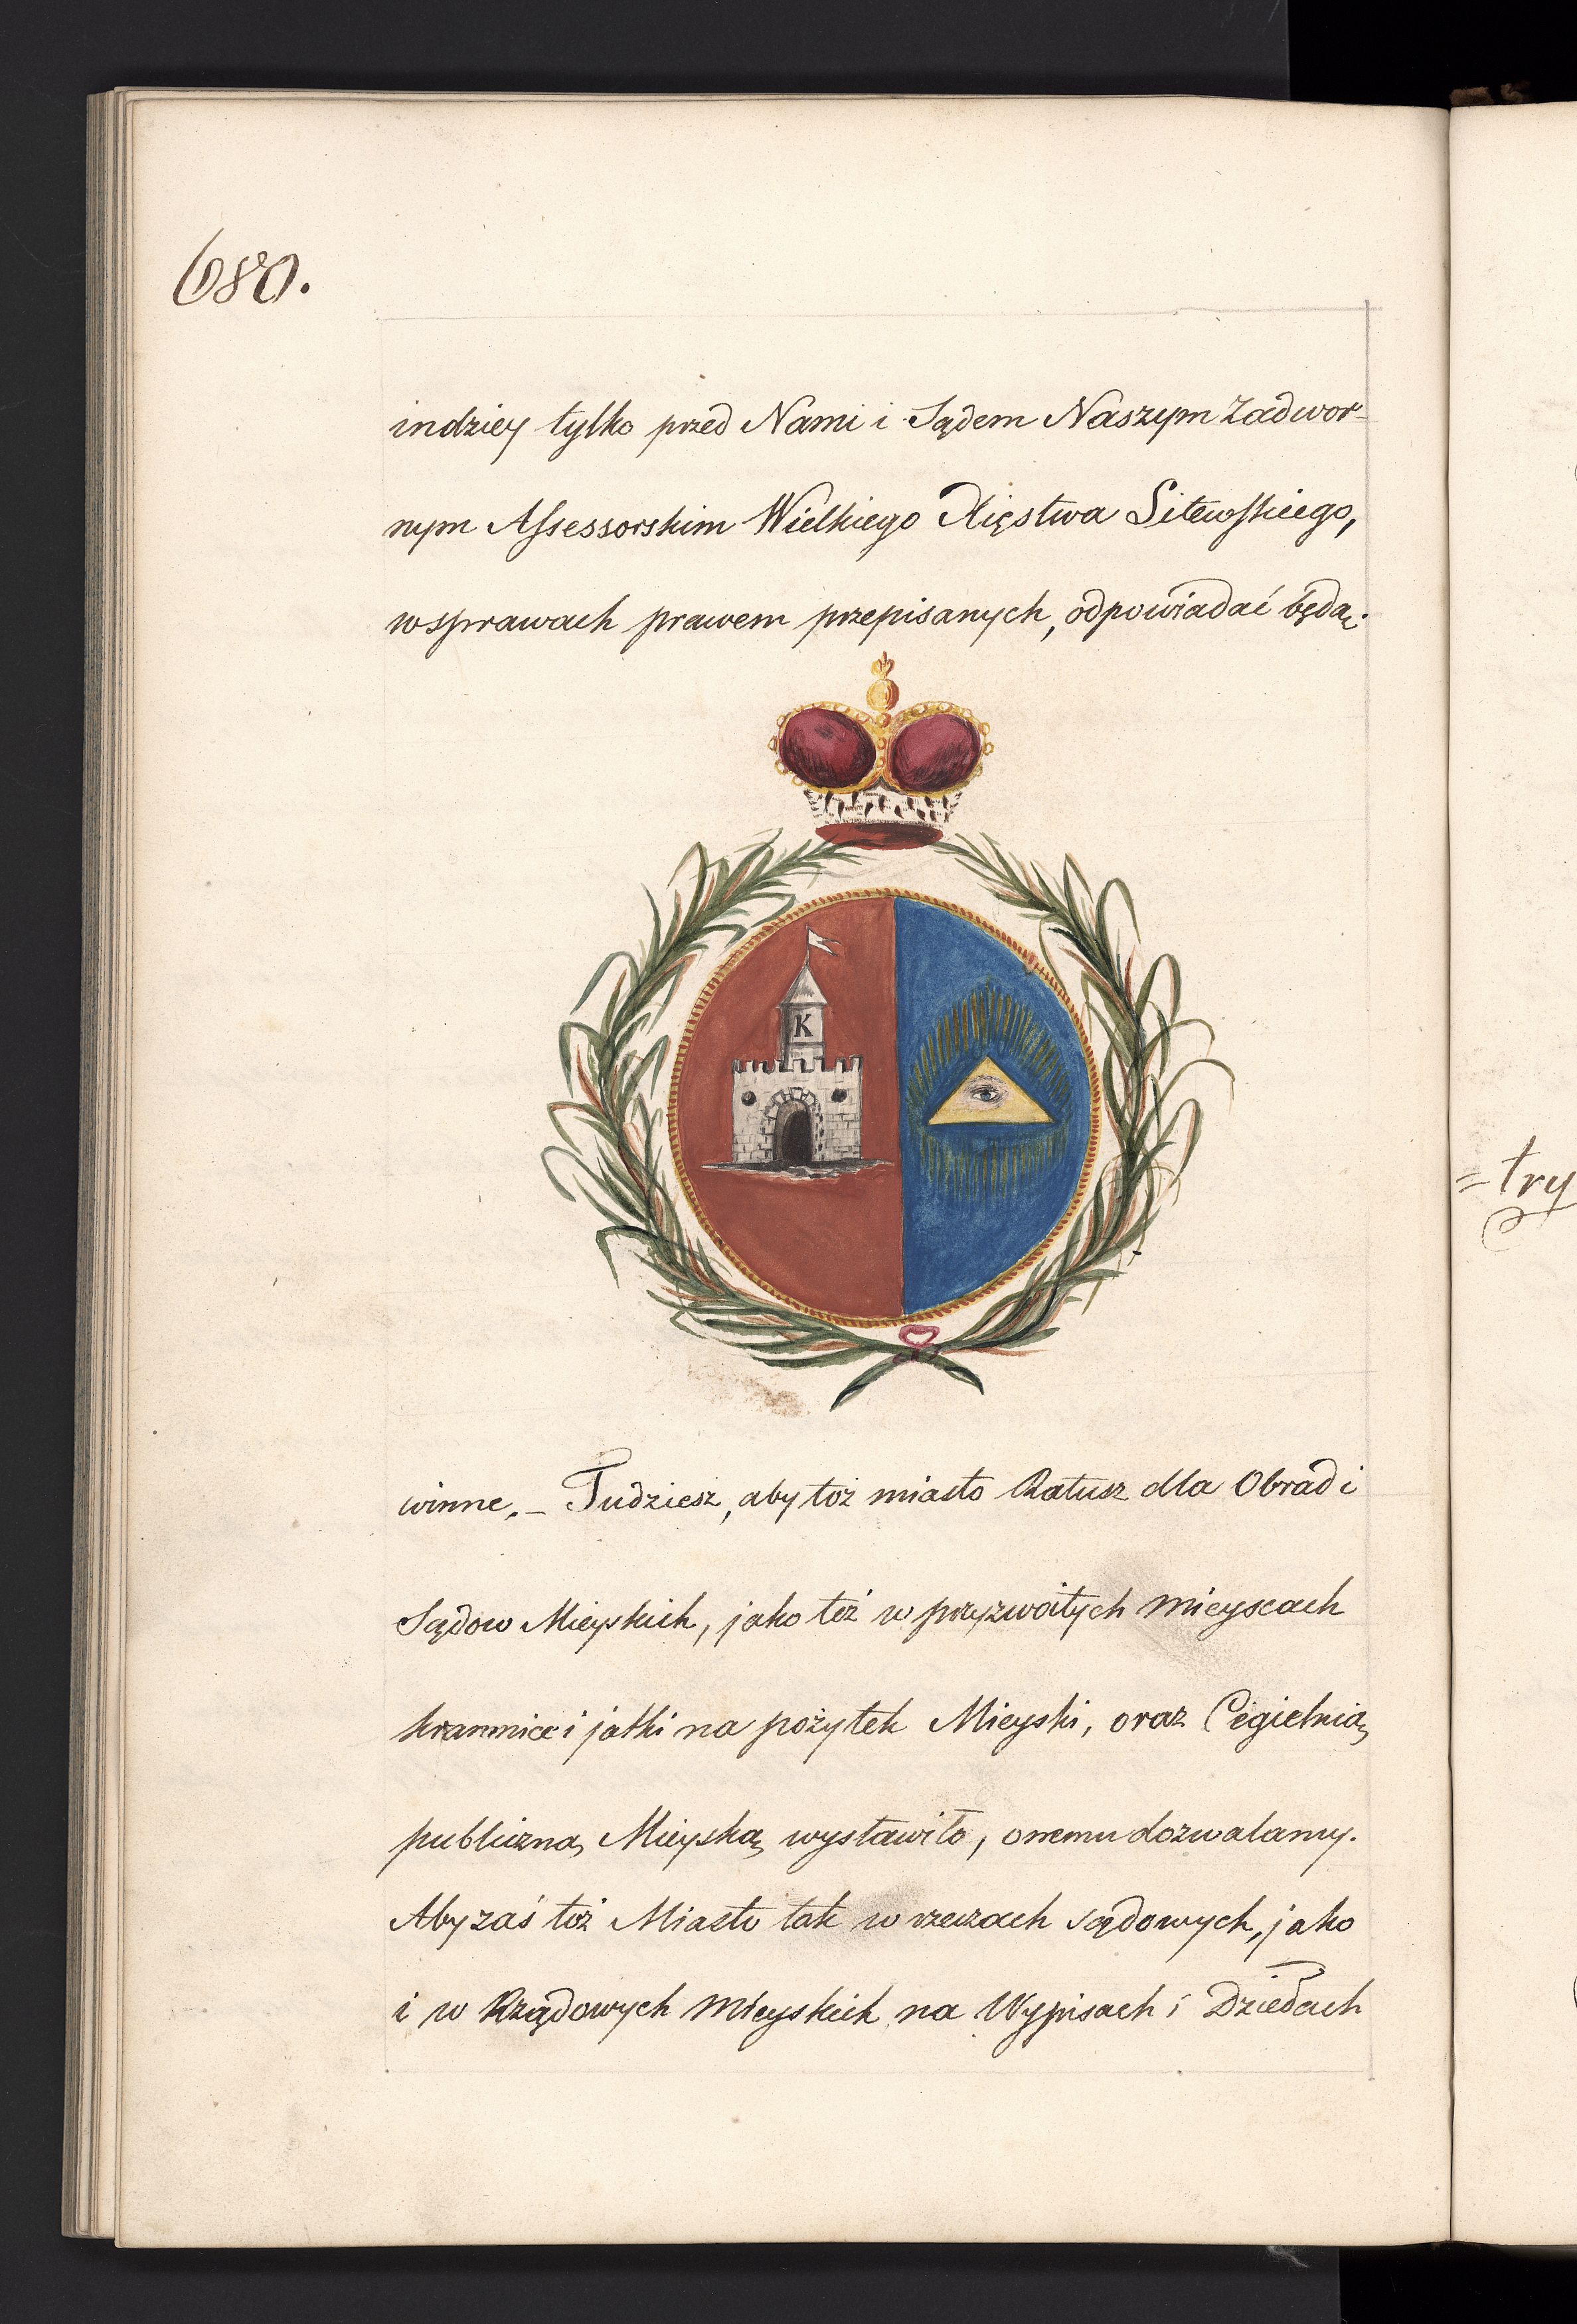 680.
indziey tylko przed Nami i Sądem Naszym Zadwor-
nym Assessorskim Wielkiego Xięstwa Litewskiego,
w sprawach prawem przepisanych, odpowiadać będą.
K
winne. – Tudziesz, aby toż miasto Ratusz dla Obrad i
Sądow Mieyskich, jako też w przyzwoitych mieyscach
kramnice i jatki na pożytek Mieyski, oraz Cegielnią
publiczną Mieyską wystawiło, onemu dozwalamy.
Aby zaś toż Miasto tak w rzeczach sądowych, jako
i w Rządowych Mieyskich na Wypisach i Dziełach
=try